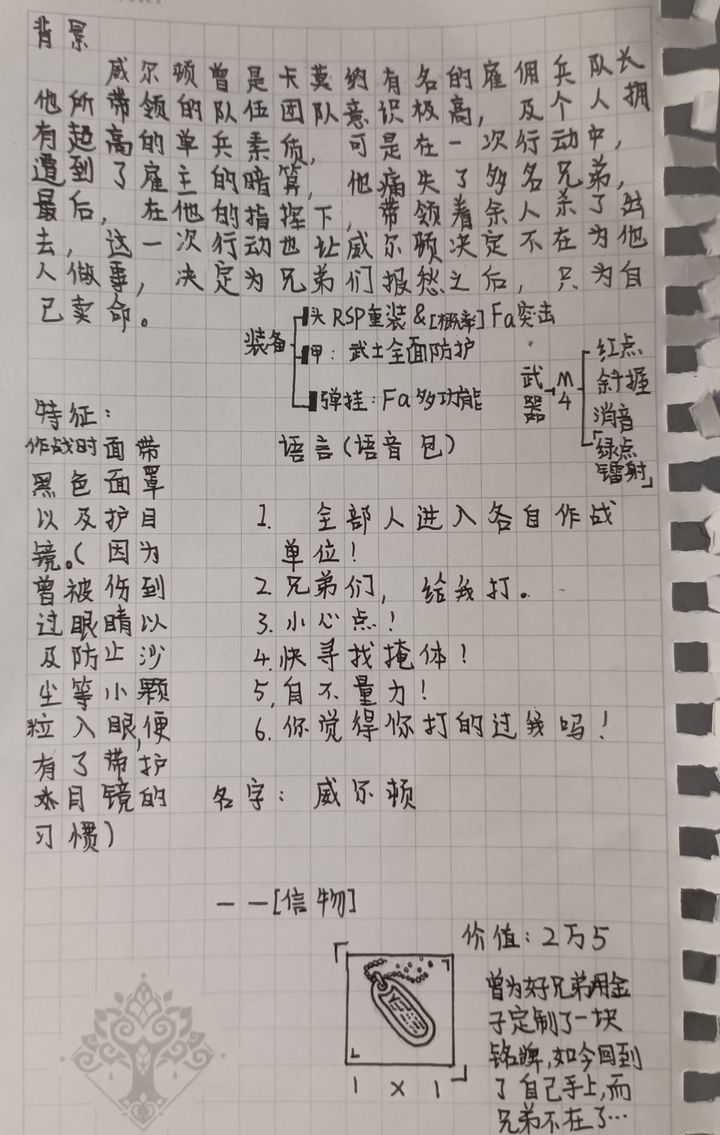 背景
威尔顿曾是卡莫纳有名的雇佣兵队长
他所带领的队伍团队意识极高，及个人拥
有超高的单兵素质，可是在一次行动中，
遭到了雇主的暗算，他痛失了多名兄弟，
最后，在他的指挥下，带领着余人杀了出
去，这一次行动也让威尔顿决定不在为他
人做事，决定为兄弟们报愁之后，只为自
己卖命。
装备
头RSP重装&[概率]Fa突击
甲：武士全面防护
弹挂：Fa多功能
武器→M4
红点
斜握
消音
「绿点
镭射」
特征：
作战时面带
黑色面罩
以及护目
镜。（因为
曾被伤到
过眼睛以
及防止沙
尘等小颗
粒入眼，便
有了带护
目镜的
习惯）
语言（语音包）
1. 全部人进入各自作战
单位！
2 兄弟们，给我打。
3. 小心点！
4. 快寻找掩体！
5, 自不量力！
6. 你觉得你打的过我吗！
名字：威尔顿
——[信物]
价值：2万5
曾为好兄弟用金
子定制了一块
铭牌，如今回到
了自己手上，而
兄弟不在了…
1 × 1